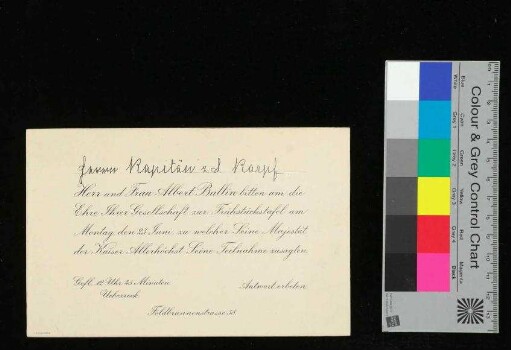 Herrn Kapitän z.d. Karpf
Herr und Frau Albert Ballin bitten um die
Ehre Ihrer Gesellschaft zur Frühstückstafel am
Montag den 25 Juni zu welcher Seine Majestät
der Kaiser Allerhöchst Seine Teilnahme zusagten
Gefl. 12 Uhr 25 Minuten
Antwort erbeten
Ueberrock
Feldbrunnenstrasse 58
Colour & Grey Control Chart
Blue
Cyan
Green
Yellow
Red
Magenta
White
Grey 1
Grey 2
Grey 3
Grey 4
Black